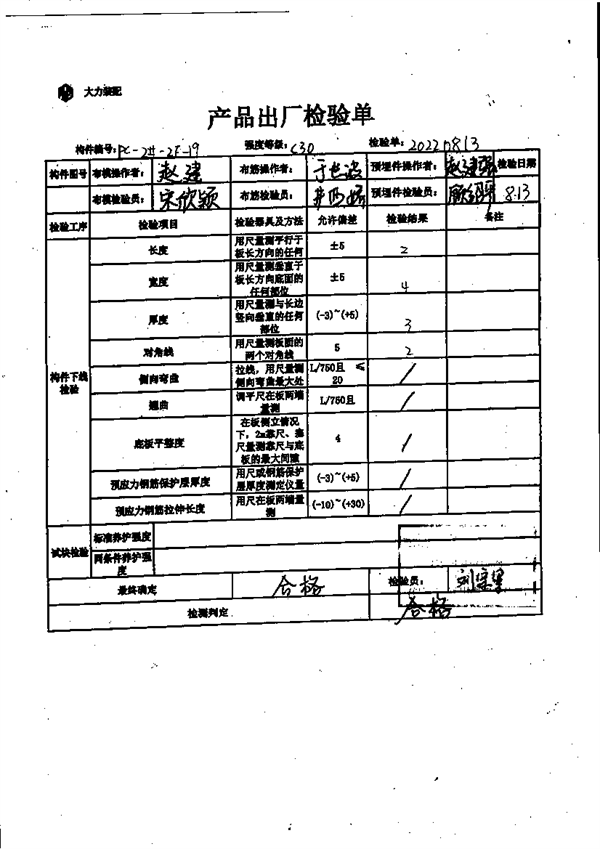 大力装配
产品出厂检验单
构件编号: PC-2#-2F-19 强度等级: C30 检验单: 20220813
构件图号 布模操作者: 赵建 布筋操作者: 预埋件操作者: 赵建强 检验日期
布模检验员: 宋欣颖 布筋检验员: 预埋件检验员: 8.13
检验工序 检验项目 检验器具及方法 允许偏差 检验结果 备注
构件下线检验
长度 用尺量测平行于板长方向的任何 ±5 2
宽度 用尺量测垂直于板长方向底面的任何部位 ±5 4
厚度 用尺量测与长边竖向垂直的任何部位 (-3)~(+5) 3
对角线 用尺量测板面的两个对角线 5 2
侧向弯曲 拉线,用尺量测侧向弯曲最大处 L/750且 ≤20 /
翘曲 调平尺在板两端量测 L/750且 /
底板平整度 在板侧立情况下,2m靠尺、塞尺量测靠尺与底板的最大间隙 4 /
预应力钢筋保护层厚度 用尺或钢筋保护层厚度测定仪量 (-3)~(+5) /
预应力钢筋拉伸长度 用尺在板两端量测 (-10)~(+30) /
试块检验 标准养护强度
同条件养护强度
最终确定 合格 检验员:
检测判定 合格